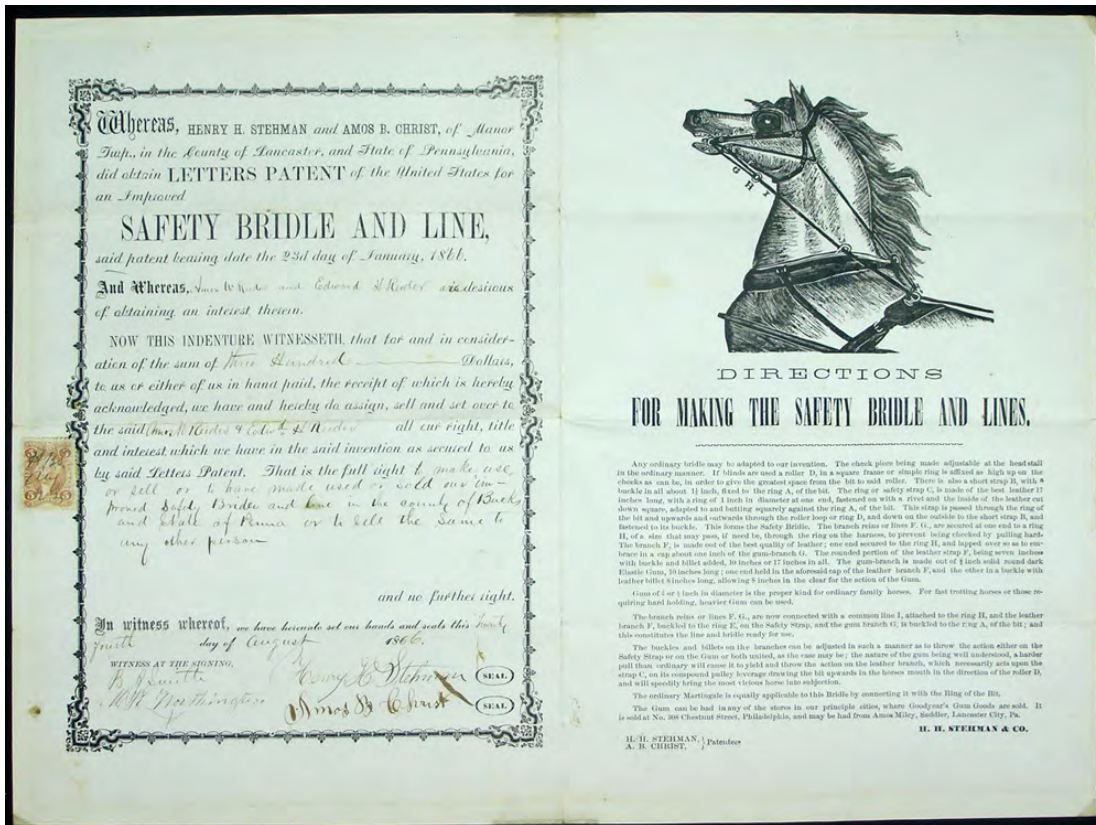 Whereas, HENRY H. STEHMAN and AMOS B. CHRIST, of Manor
Twp., in the County of Lancaster, and State of Pennsylvania,
did obtain LETTERS PATENT of the United States for
an Improved
SAFETY BRIDLE AND LINE,
said patent bearing date the 23d day of January, 1866.
And Whereas, Amos W Rieder and Edward H Rieder are desirous
of obtaining an interest therein.
NOW THIS INDENTURE WITNESSETH, that for and in consider-
ation of the sum of three Hundred Dollars,
to us or either of us in hand paid, the receipt of which is hereby
acknowledged, we have and hereby do assign, sell and set over to
the said Amos W Rieder & Edwd H Rieder all our right, title
and interest which we have in the said invention as secured to us
by said Letters Patent. That is the full right to make use
or sell or to have made used or sold our im-
proved Safety Bridle and line in the county of Bucks
and State of Penna or to sell the same to
any other person
and no further right.
In witness whereof, we have hereunto set our hands and seals this twenty
fourth day of August 1866.
WITNESS AT THE SIGNING,
B J
Henry H Stehman SEAL
Worthington
Amos B Christ SEAL
G H I
DIRECTIONS
FOR MAKING THE SAFETY BRIDLE AND LINES.
Any ordinary bridle may be adapted to our invention. The check piece being made adjustable at the head stall
in the ordinary manner. If blinds are used a roller D, in a square frame or simple ring is affixed as high up on the
cheeks as can be, in order to give the greatest space from the bit to said roller. There is also a short strap B, with a
buckle in all about 1½ inch, fixed to the ring A, of the bit. The ring or safety strap C, is made of the best leather 17
inches long, with a ring of 1 inch in diameter at one end, fastened on with a rivet and the inside of the leather cut
down square, adapted to and butting squarely against the ring A, of the bit. This strap is passed through the ring of
the bit and upwards and outwards through the roller loop or ring D, and down on the outside to the short strap B, and
fastened to its buckle. This forms the Safety Bridle. The branch reins or lines F. G., are secured at one end to a ring
H, of a size that may pass, if need be, through the ring on the harness, to prevent being checked by pulling hard.
The branch F, is made out of the best quality of leather; one end secured to the ring H, and lapped over so as to em-
brace in a cap about one inch of the gum-branch G. The rounded portion of the leather strap F, being seven inches
with buckle and billet added, 10 inches or 17 inches in all. The gum-branch is made out of inch solid round dark
Elastic Gum, 10 inches long; one end held in the aforesaid cap of the leather branch F, and the other in a buckle with
leather billet 8 inches long, allowing 8 inches in the clear for the action of the Gum.
Gum of or inch in diameter is the proper kind for ordinary family horses. For fast trotting horses or those re-
quiring hard holding, heavier Gum can be used.
The branch reins or lines F. G., are now connected with a common line I, attached to the ring H, and the leather
branch F, buckled to the ring E, on the Safety Strap, and the gum branch G, is buckled to the ring A, of the bit; and
this constitutes the line and bridle ready for use.
The buckles and billets on the branches can be adjusted in such a manner as to throw the action either on the
Safety Strap or on the Gum or both united, as the case may be; the nature of the gum being well understood, a harder
pull than ordinary will cause it to yield and throw the action on the leather branch, which necessarily acts upon the
strap C, on its compound pulley leverage drawing the bit upwards in the horses mouth in the direction of the roller D,
and will speedily bring the most vicious horse into subjection.
The ordinary Martingale is equally applicable to this Bridle by connecting it with the Ring of the Bit.
The Gum can be had in any of the stores in our principle cities, where Goodyear's Gum Goods are sold. It
is sold at No. 308 Chestnut Street, Philadelphia, and may be had from Amos Miley, Saddler, Lancaster City, Pa.
H. H. STEHMAN & CO.
H. H. STEHMAN,
A. B. CHRIST, } Patentees